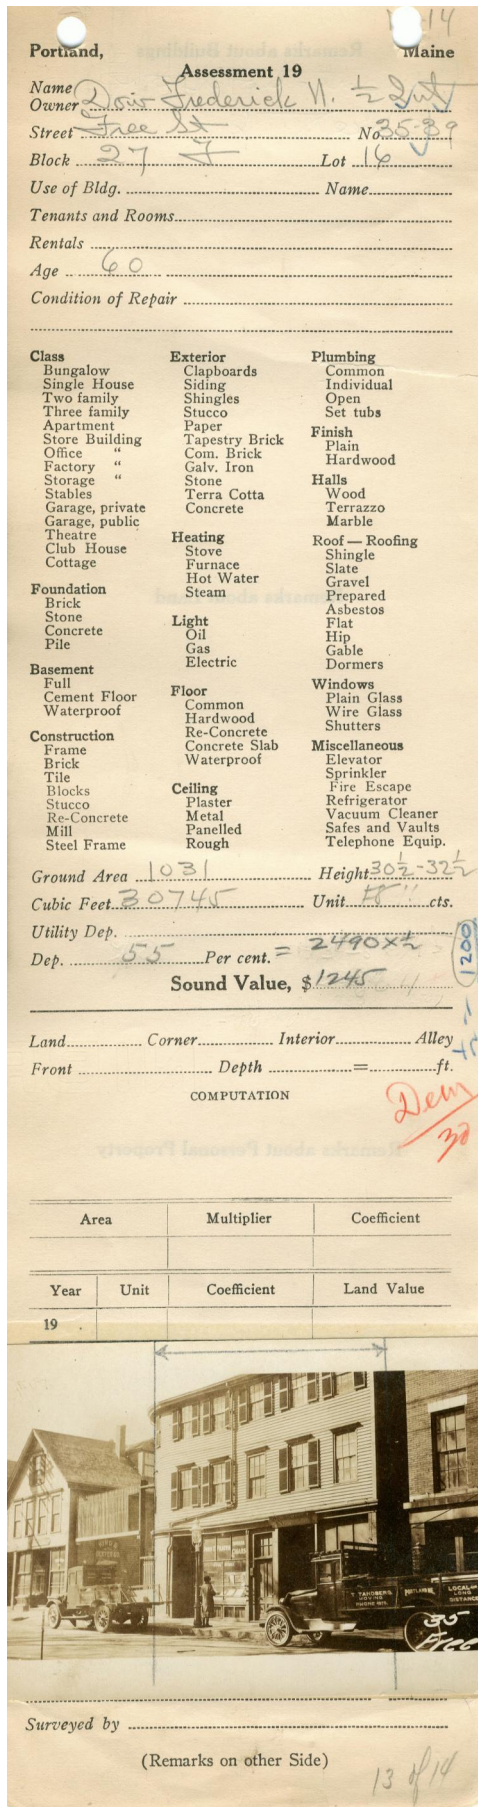 14
Portland, Maine
Assessment 19
Name
Owner Doiw Frederick N. ½ Int
Street Free St No 35-39
Block 27 F Lot 16
Use of Bldg. Name
Tenants and Rooms
Rentals
Age 60
Condition of Repair
Class
Bungalow
Single House
Two family
Three family
Apartment
Store Building
Office "
Factory "
Storage "
Stables
Garage, private
Garage, public
Theatre
Club House
Cottage
Foundation
Brick
Stone
Concrete
Pile
Basement
Full
Cement Floor
Waterproof
Construction
Frame
Brick
Tile
Blocks
Stucco
Re-Concrete
Mill
Steel Frame
Exterior
Clapboards
Siding
Shingles
Stucco
Paper
Tapestry Brick
Com. Brick
Galv. Iron
Stone
Terra Cotta
Concrete
Heating
Stove
Furnace
Hot Water
Steam
Light
Oil
Gas
Electric
Floor
Common
Hardwood
Re-Concrete
Concrete Slab
Waterproof
Ceiling
Plaster
Metal
Panelled
Rough
Plumbing
Common
Individual
Open
Set tubs
Finish
Plain
Hardwood
Halls
Wood
Terrazzo
Marble
Roof — Roofing
Shingle
Slate
Gravel
Prepared
Asbestos
Flat
Hip
Gable
Dormers
Windows
Plain Glass
Wire Glass
Shutters
Miscellaneous
Elevator
Sprinkler
Fire Escape
Refrigerator
Vacuum Cleaner
Safes and Vaults
Telephone Equip.
Ground Area 1031 Height 30½-32½
Cubic Feet 30745 Unit 18 cts.
Utility Dep.
Dep. 55 Per cent. = 2490 x ½
Sound Value, $1245
1200
Land Corner Interior Alley
Front Depth = ft.
COMPUTATION
Dem
30
Area Multiplier Coefficient
Year Unit Coefficient Land Value
19
T. TANDBERG
MOVING
PORTLAND ME.
LOCAL AND
LONG
DISTANCE
35
Free
Surveyed by
(Remarks on other Side)
13 of 14